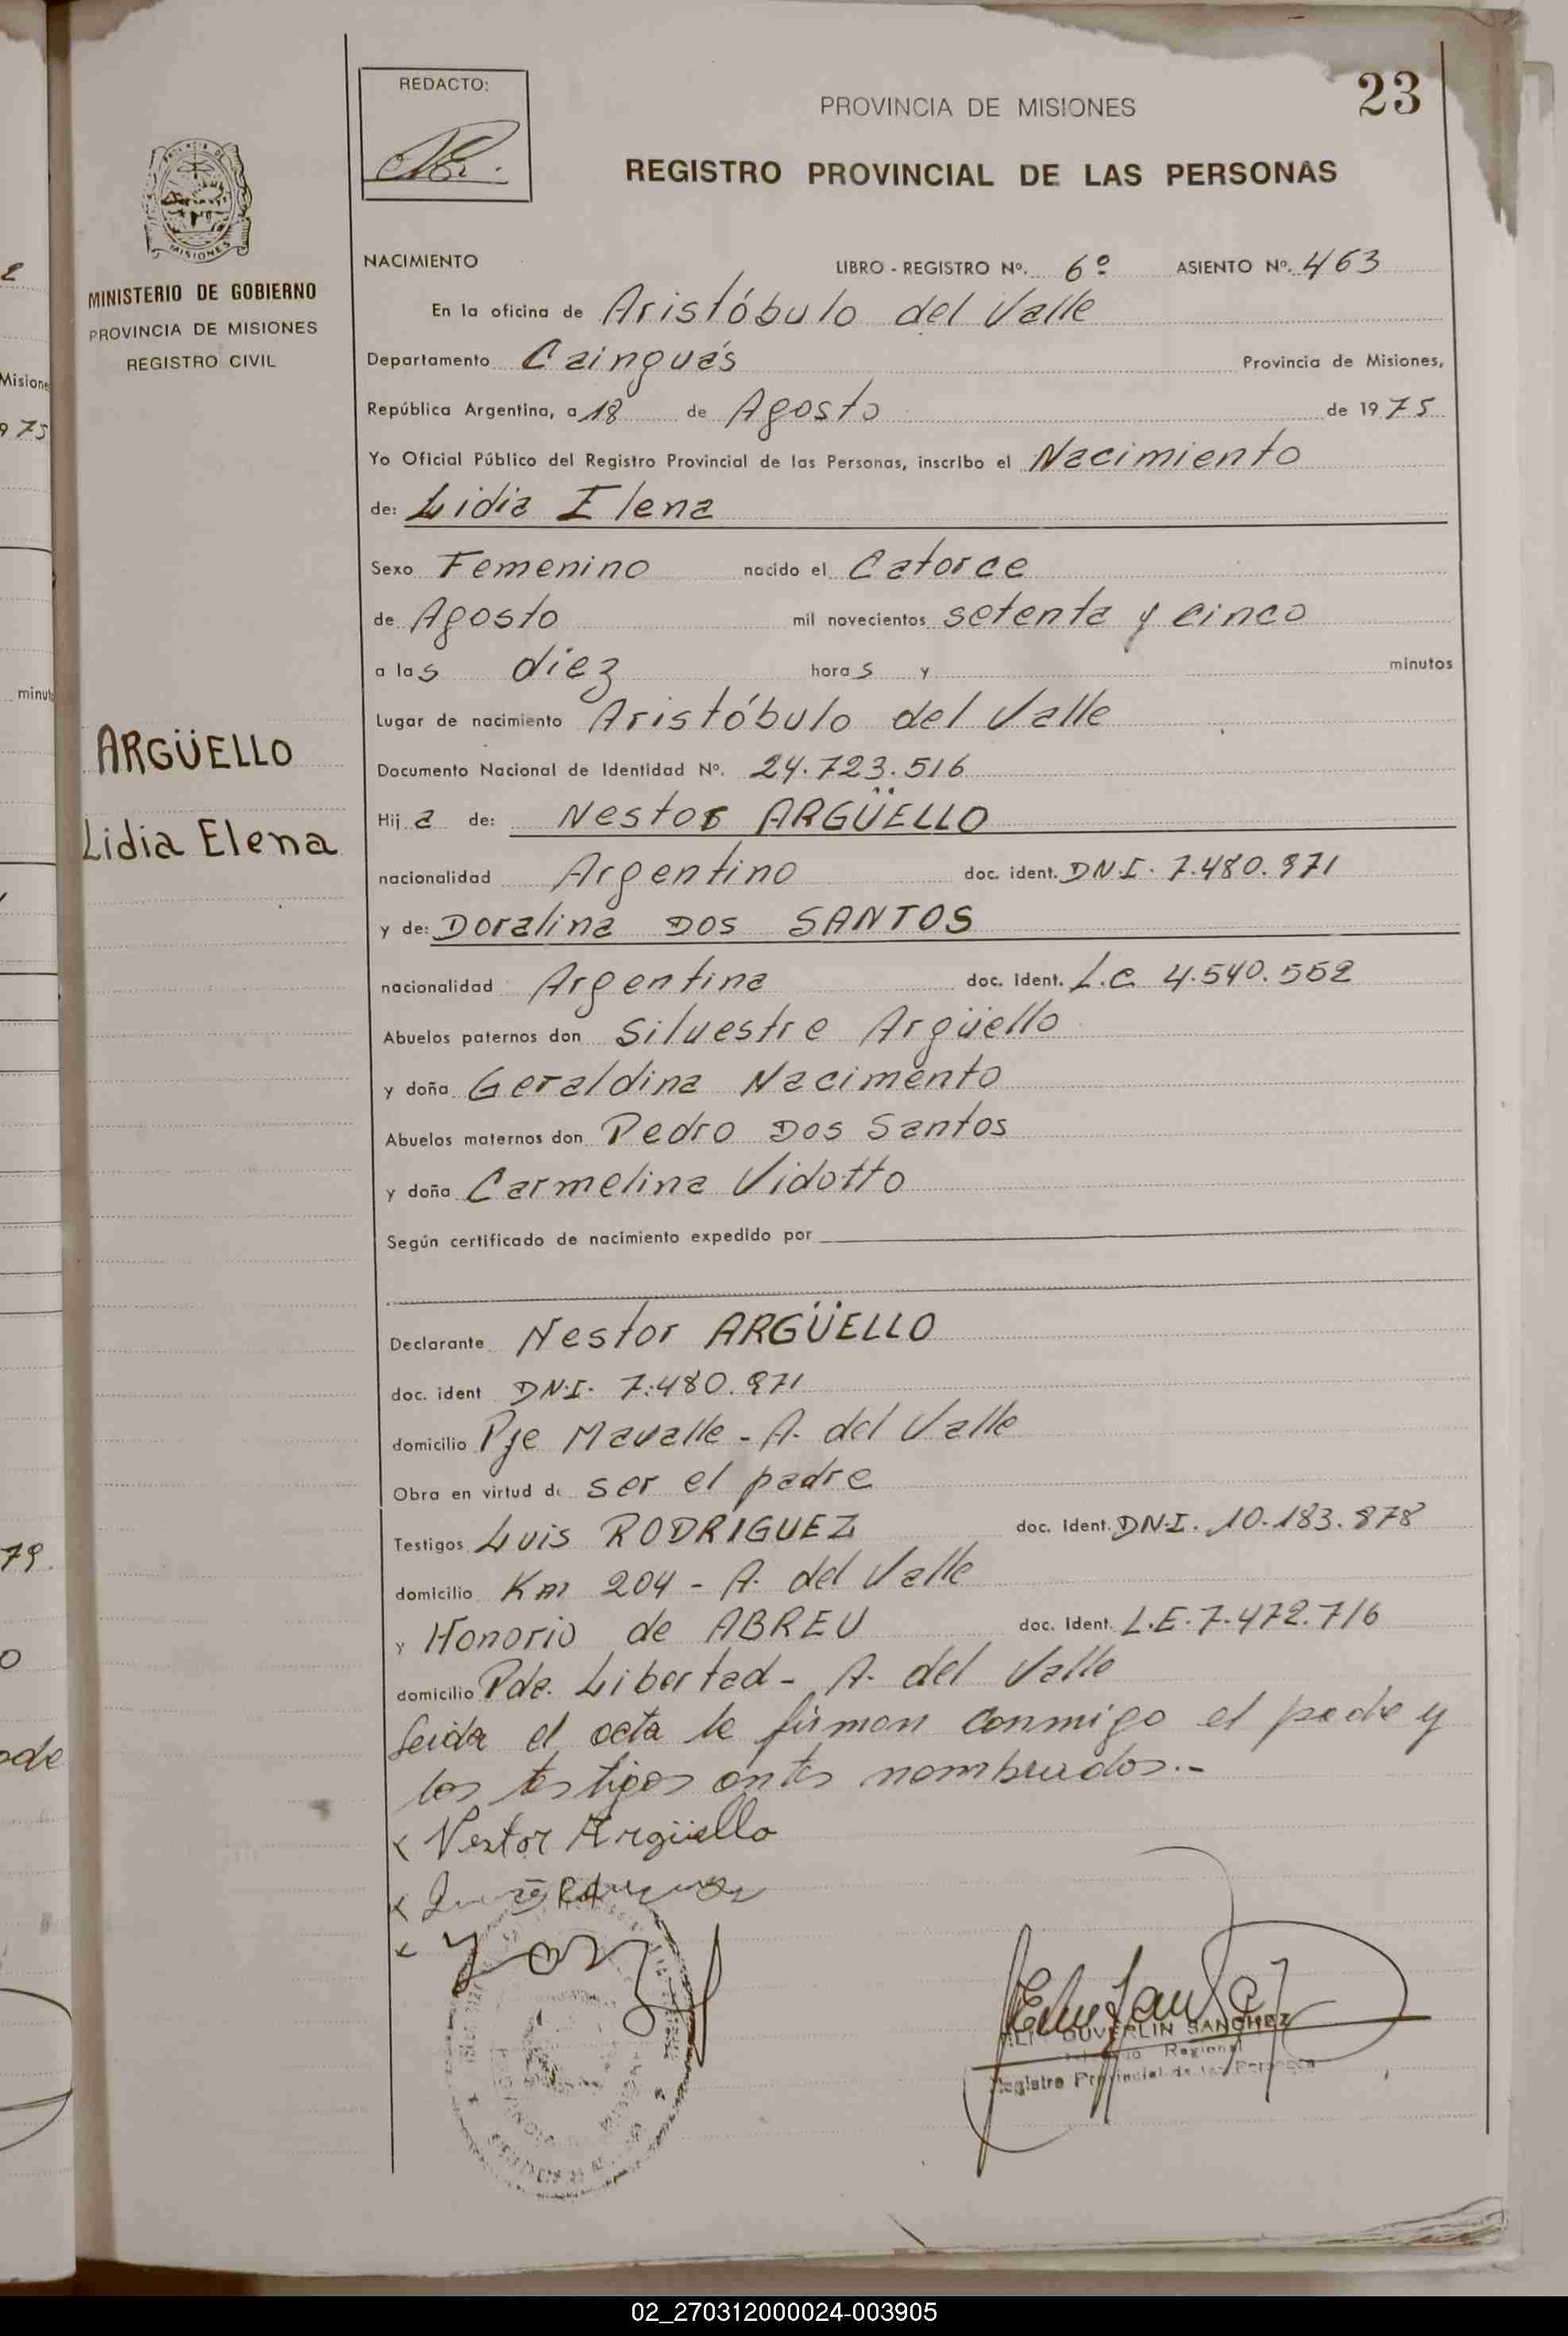 REDACTO:
23
PROVINCIA DE MISIONES
REGISTRO PROVINCIAL DE LAS PERSONAS
MISIONES
MINISTERIO DE GOBIERNO
PROVINCIA DE MISIONES
REGISTRO CIVIL
ARGÜELLO
Lidia Elena
NACIMIENTO LIBRO - REGISTRO Nº. 6º ASIENTO Nº. 463
En la oficina de Aristóbulo del Valle
Departamento Cainguás Provincia de Misiones,
República Argentina, a 18 de Agosto de 1975
Yo Oficial Público del Registro Provincial de las Personas, inscribo el Nacimiento
de: Lidia Elena
Sexo Femenino nacido el Catorce
de Agosto mil novecientos setenta y cinco
a las diez horas y minutos
Lugar de nacimiento Aristóbulo del Valle
Documento Nacional de Identidad Nº. 24.723.516
Hija de: Nestor ARGÜELLO
nacionalidad Argentino doc. ident. D.N.I. 7.480.971
y de: Doralina DOS SANTOS
nacionalidad Argentina doc. ident. L.C. 4.540.552
Abuelos paternos don Silvestre Argüello
y doña Geraldina Nacimento
Abuelos maternos don Pedro Dos Santos
y doña Carmelina Vidotto
Según certificado de nacimiento expedido por
Declarante Nestor ARGÜELLO
doc. ident D.N.I. 7.480.971
domicilio Pje Mavalle - A. del Valle
Obra en virtud de ser el padre
Testigos Luis RODRIGUEZ doc. ident. D.N.I. 10.183.878
domicilio Km 204 - A. del Valle
y Honorio de ABREU doc. ident. L.E. 7.472.716
domicilio Pda. Libertad - A. del Valle
Leida el acta la firman conmigo el padre y
los testigos antes nombrados.-
x Nestor Argüello
x
x
DUVERLIN SANCHEZ
Regional
Registro Provincial de las Personas
2
Misione
9 75
minut
79.
02_270312000024-003905